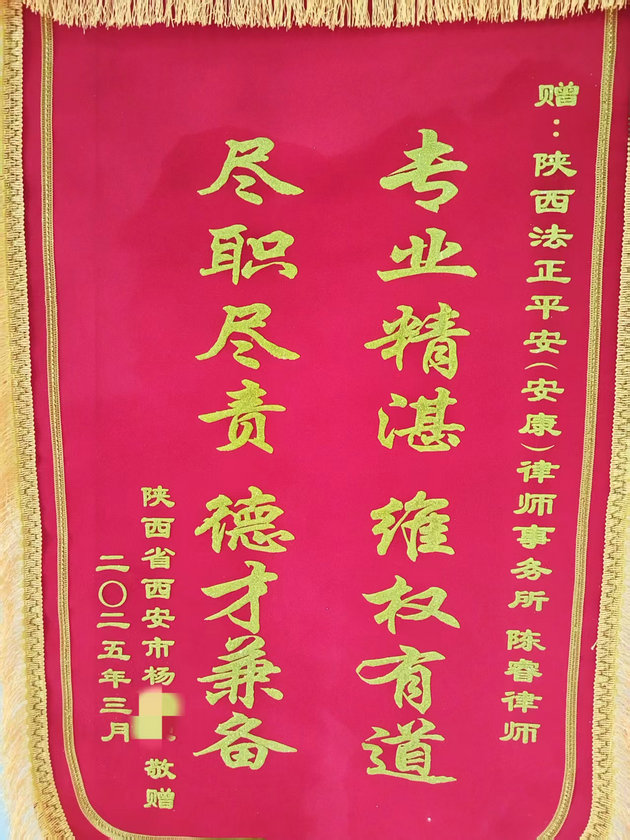 赠：陕西法正平安(安康)律师事务所 陈睿律师
专业精湛 维权有道
尽职尽责 德才兼备
陕西省西安市杨 敬赠
二〇二五年三月